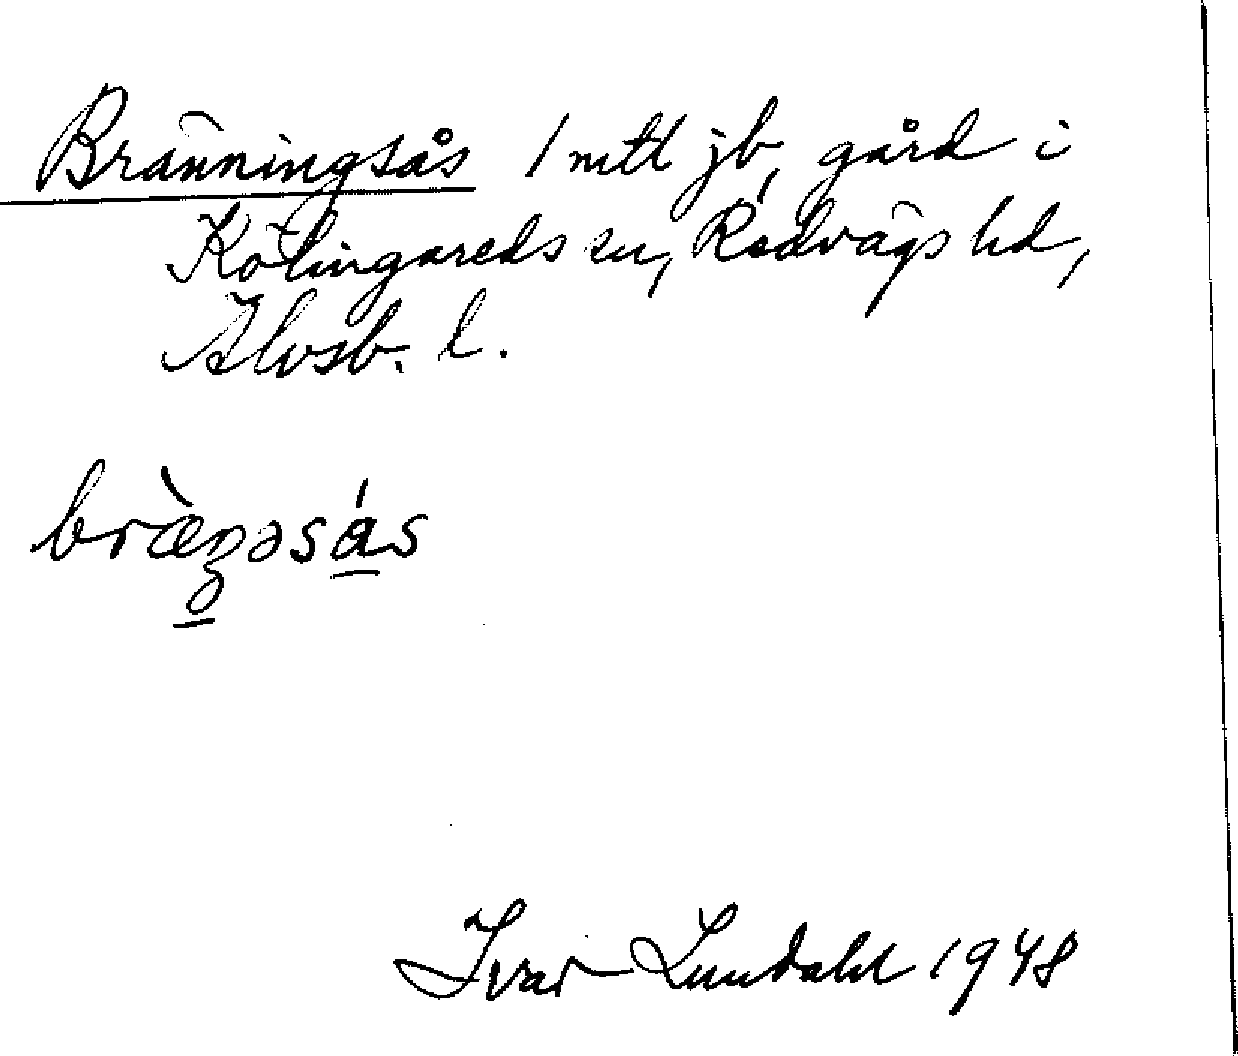 Bränningsås 1 mtl jb, gård i
Kölingareds sn, Redvägs hd,
Älvsb. l.
bræ̀ŋəsás
Ivar Lundahl 1948